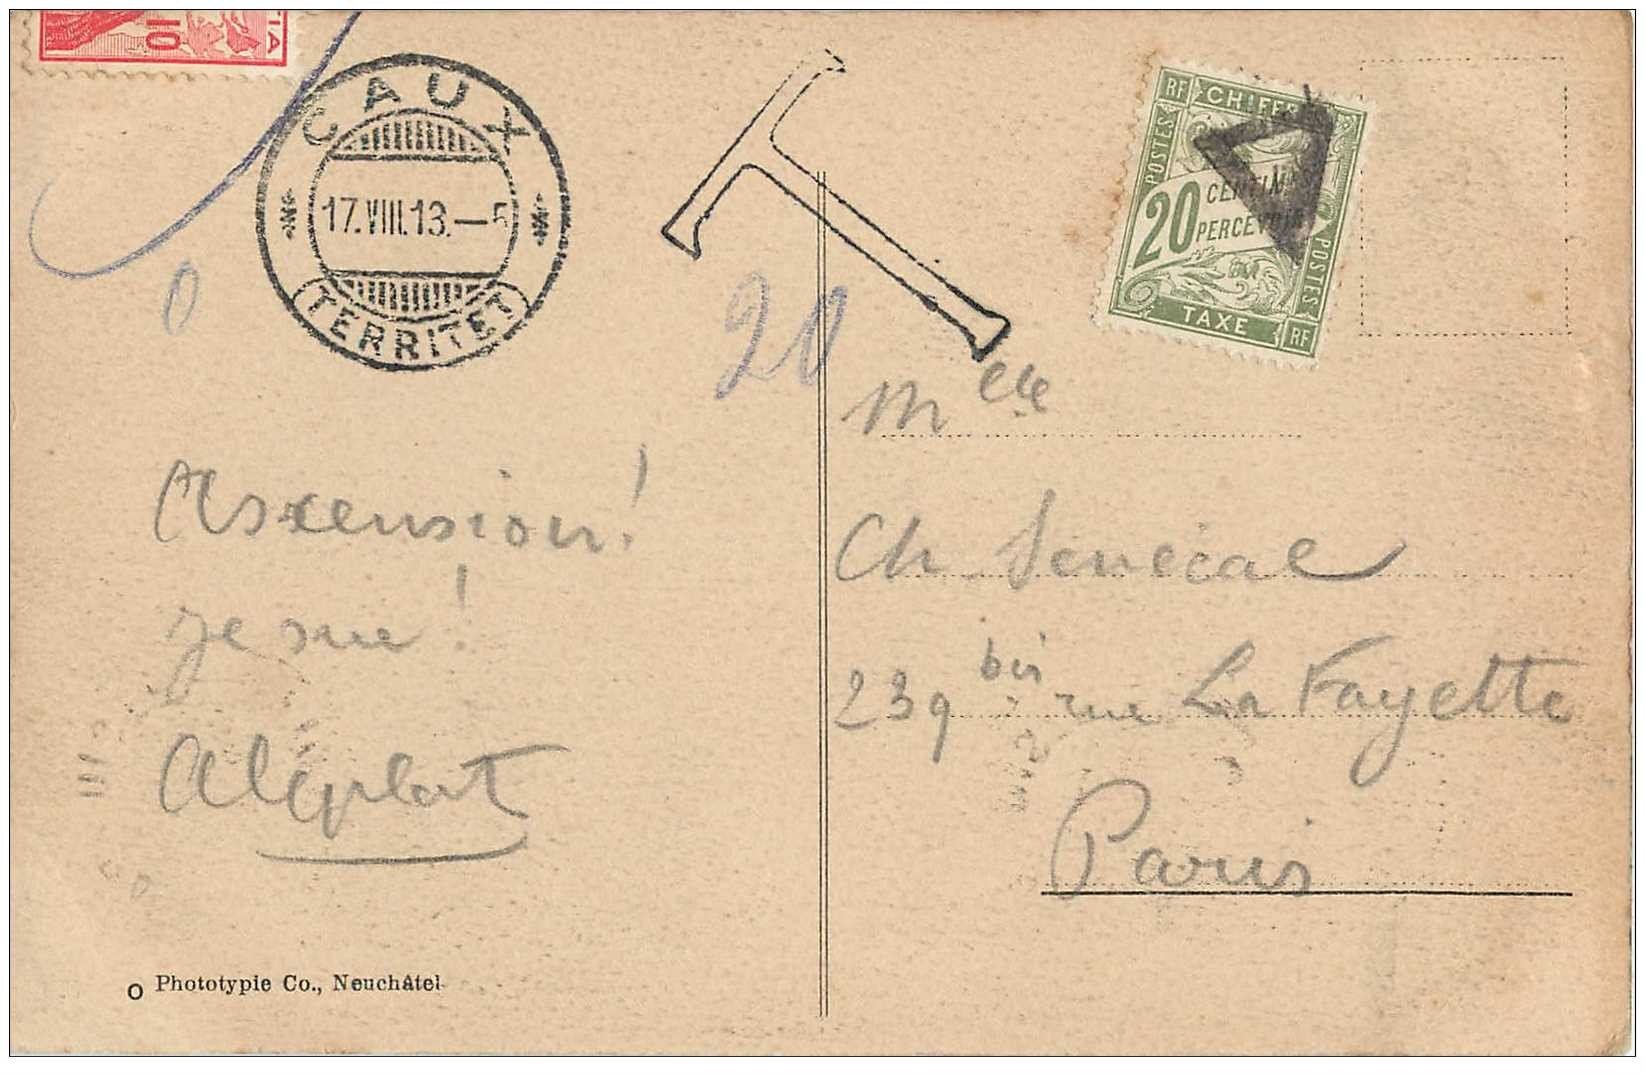 10
CAUX
17.VIII.13.—5
TERRITET
T
RF CHIFFR
POSTES
20 CENTIM
PERCEVOIR
POSTES
TAXE RF
0
20
Mlle
Ascension!
Ch. Senécal
je sue!
239 bis rue La Fayette
Paris
O Phototypie Co., Neuchâtel